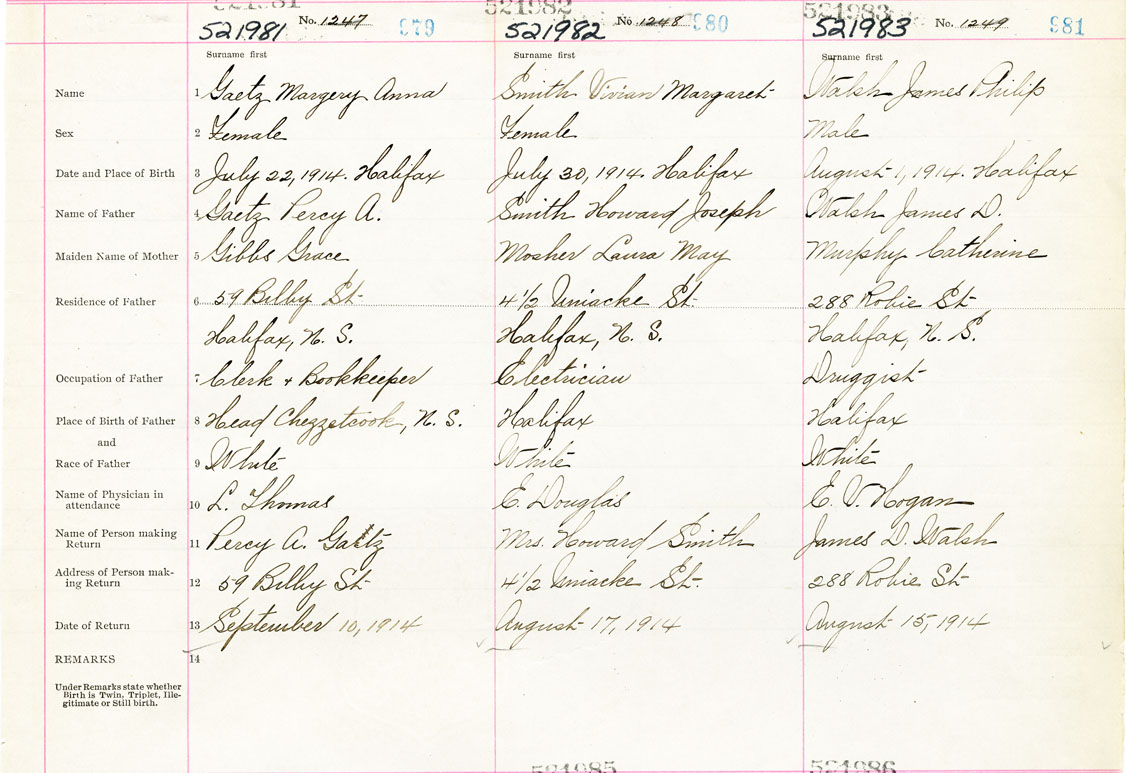 521981 521982 521983
521981 No. 1247 979 521982 No 1248 980 521983 No. 1249 981
Surname first Surname first Surname first
Name 1 Gaetz Margery Anna Smith Vivian Margaret Walsh James Philip
Sex 2 Female Female Male
Date and Place of Birth 3 July 22, 1914. Halifax July 30, 1914. Halifax August 1, 1914. Halifax
Name of Father 4 Gaetz Percy A. Smith Howard Joseph Walsh James D.
Maiden Name of Mother 5 Gibbs Grace Mosher Laura May Murphy Catherine
Residence of Father 6 59 Bilby St. 4 1/2 Uniacke St. 288 Robie St.
Halifax, N. S. Halifax, N. S. Halifax, N. S.
Occupation of Father 7 Clerk + Bookkeeper Electrician Druggist
Place of Birth of Father 8 Head Chezzetcook, N. S. Halifax Halifax
and
Race of Father 9 White White White
Name of Physician in
attendance 10 L. Thomas E. Douglas E. V. Hogan
Name of Person making
Return 11 Percy A. Gaetz Mrs. Howard Smith James D. Walsh
Address of Person mak-
ing Return 12 59 Bilby St 4 1/2 Uniacke St. 288 Robie St.
Date of Return 13 September 10, 1914 August 17, 1914 August 15, 1914
REMARKS 14
Under Remarks state whether
Birth is Twin, Triplet, Ille-
gitimate or Still birth.
521985 521986